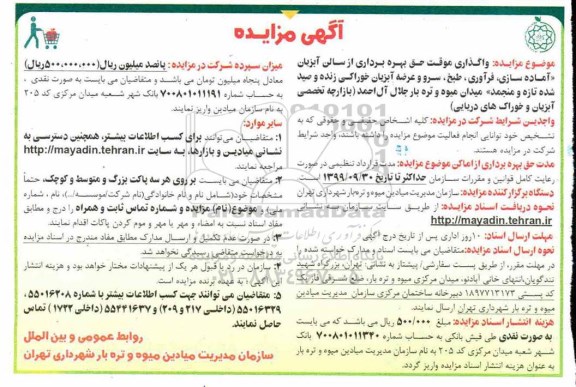 آگهی مزایده
موضوع مزایده: واگذاری موقت حق بهره برداری از سالن آبزیان
«آماده سازی، فرآوری، طبخ، سرو و عرضه آبزیان خوراکی زنده و صید
شده تازه و منجمد» میدان میوه و تره بار جلال آل‌احمد (بازارچه تخصصی
آبزیان و خوراک های دریایی)
واجدین شرایط شرکت در مزایده: کلیه اشخاص حقیقی و حقوقی که به
تشخیص خود توانایی انجام فعالیت موضوع مزایده را داشته باشند، واجد شرایط
شرکت در مزایده هستند.
مدت حق بهره برداری از اماکن موضوع مزایده: مدت قرارداد تنظیمی در صورت
رعایت کامل قوانین و مقررات سازمان حداکثر تا تاریخ ۱۳۹۹/۰۹/۳۰
دستگاه برگزارکننده مزایده: سازمان مدیریت میادین میوه و تره‌بار شهرداری تهران
نحوه دریافت اسناد مزایده: از طریق سایت سازمان به نشانی
http://mayadin.tehran.ir
مهلت ارسال اسناد: ۱۰ روز اداری پس از تاریخ درج آگهی
نحوه ارسال اسناد مزایده: متقاضیان می بایست اسناد و مدارک خواسته شده را
در مهلت مقرر، از طریق پست سفارشی/ پیشتاز به نشانی: تهران، بزرگراه شهید
تندگویان، انتهای خانی آبادنو، میدان مرکزی میوه و تره بار، ضلع شرقی فاز
کد پستی ۱۸۹۷۷۱۳۱۷۳ دبیرخانه ساختمان مرکزی سازمان مدیریت میادین
میوه و تره بار شهرداری تهران ارسال نمایند.
هزینه انتشار اسناد مزایده: مبلغ ۵۰۰/۰۰۰ ریال می باشد که می بایست
به صورت نقدی طی فیش بانکی به حساب شماره ۷۰۰۸۰۱۰۱۱۳۲۰ بانک
شهر شعبه میدان مرکزی کد ۲۰۵ به نام سازمان مدیریت میادین میوه و تره بار
به عنوان هزینه انتشار اسناد مزایده واریز گردد.
میزان سپرده شرکت در مزایده: پانصد میلیون ریال (۵۰۰،۰۰۰،۰۰۰ریال)
معادل پنجاه میلیون تومان می باشد و متقاضیان می بایست به صورت نقدی ،
به حساب شماره ۷۰۰۸۰۱۰۱۱۱۹۱ بانک شهر شعبه میدان مرکزی کد ۲۰۵
به نام سازمان میادین واریز نمایند.
سایر موارد:
۱: متقاضیان می‌توانند برای کسب اطلاعات بیشتر، همچنین دسترسی به
نشانی میادین و بازارها، به سایت http://mayadin.tehran.ir
مراجعه نمایند.
۲: متقاضیان می بایست بر روی هر سه پاکت بزرگ و متوسط و کوچک، حتماً
مشخصات خود (شامل نام و نام خانوادگی (نام شرکت/موسسه/...)، نام ، شماره
ملی) و موضوع (نام) مزایده و شماره تماس ثابت و همراه را درج و مطابق
مفاد اسناد نسبت به امضاء و مهر یا مهر و موم کردن پاکات اقدام نمایند.
۳: در صورت عدم تکمیل و ارسال مدارک مطابق مفاد مندرج در اسناد مزایده
به درخواست متقاضی رسیدگی نخواهد شد.
۴: سازمان در رد یا قبول هر یک از پیشنهادات مختار خواهد بود و هزینه انتشار
این آگهی به عهده برنده مزایده است.
۵: متقاضیان می توانند جهت کسب اطلاعات بیشتر با شماره ۵۵۰۱۶۲۰۸ ،
۵۵۰۱۶۳۲۹ (داخلی ۲۱۷ و ۲۰۹) و ۵۵۴۴۱۶۳۷ (داخلی ۱۷۲۲) تماس
حاصل نمایند.
روابط عمومی و بین الملل
سازمان مدیریت میادین میوه و تره بار شهرداری تهران